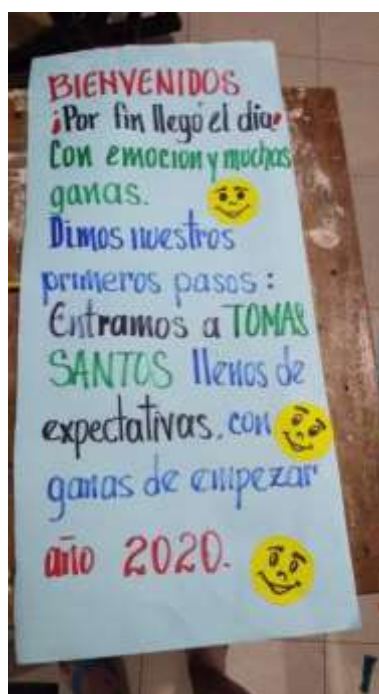 BIENVENIDOS
¡Por fin llegó el dia!
Con emocion y muchas
ganas.
Dimos nuestros
primeros pasos:
Entramos a TOMAS
SANTOS llenos de
expectativas, con
ganas de empezar
año 2020.